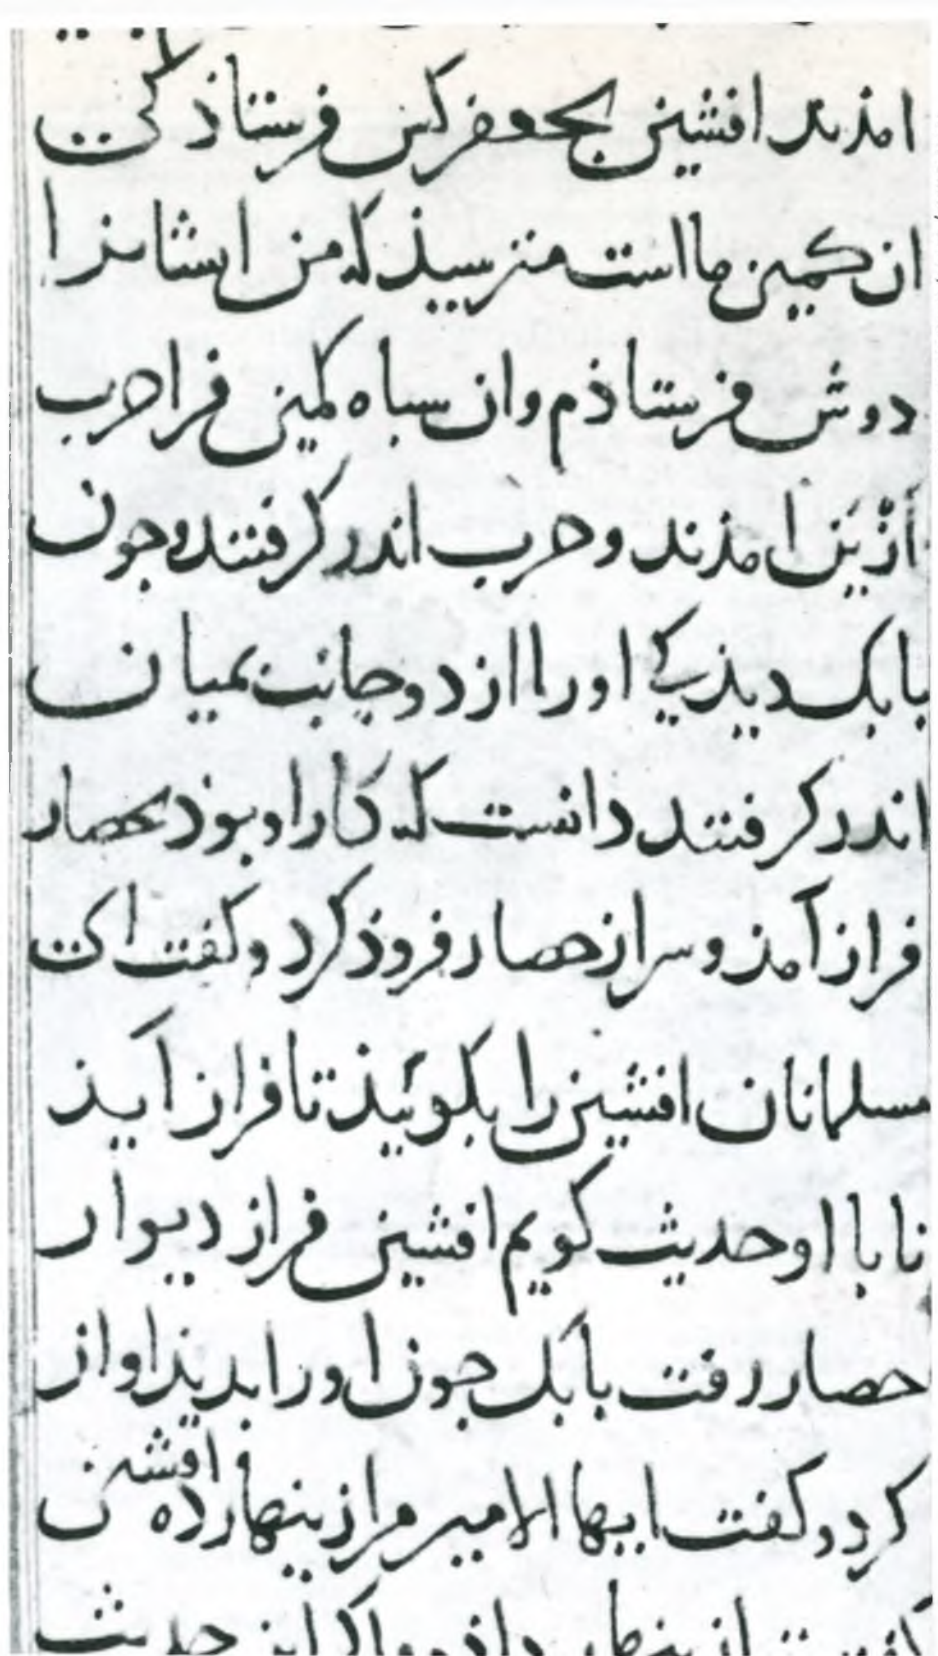 امذند افشین بجعفر کس فرستاذ کی
ان کمین ما است مترسیذ که من ایشانرا
دوش فرستاذم وان سباه کمین فرا حرب
آذین امذند و حرب اندر کرفتند و جون
بابک دیذ کی اورا از دو جانب بمیان
اندر کرفتند دانست که کار او بوذ بحصار
فراز آمذ و سر از حصار فروذ کرد و کفت اکت
مسلمانان افشین را بکوئیذ تا فراز آیذ
تا با او حدیث کویم افشین فراز دیوار
حصار رفت بابک جون اورا بدیذ اواز
کرد و کفت ایها الامیر مرا زینهار ده افشین
حدیث